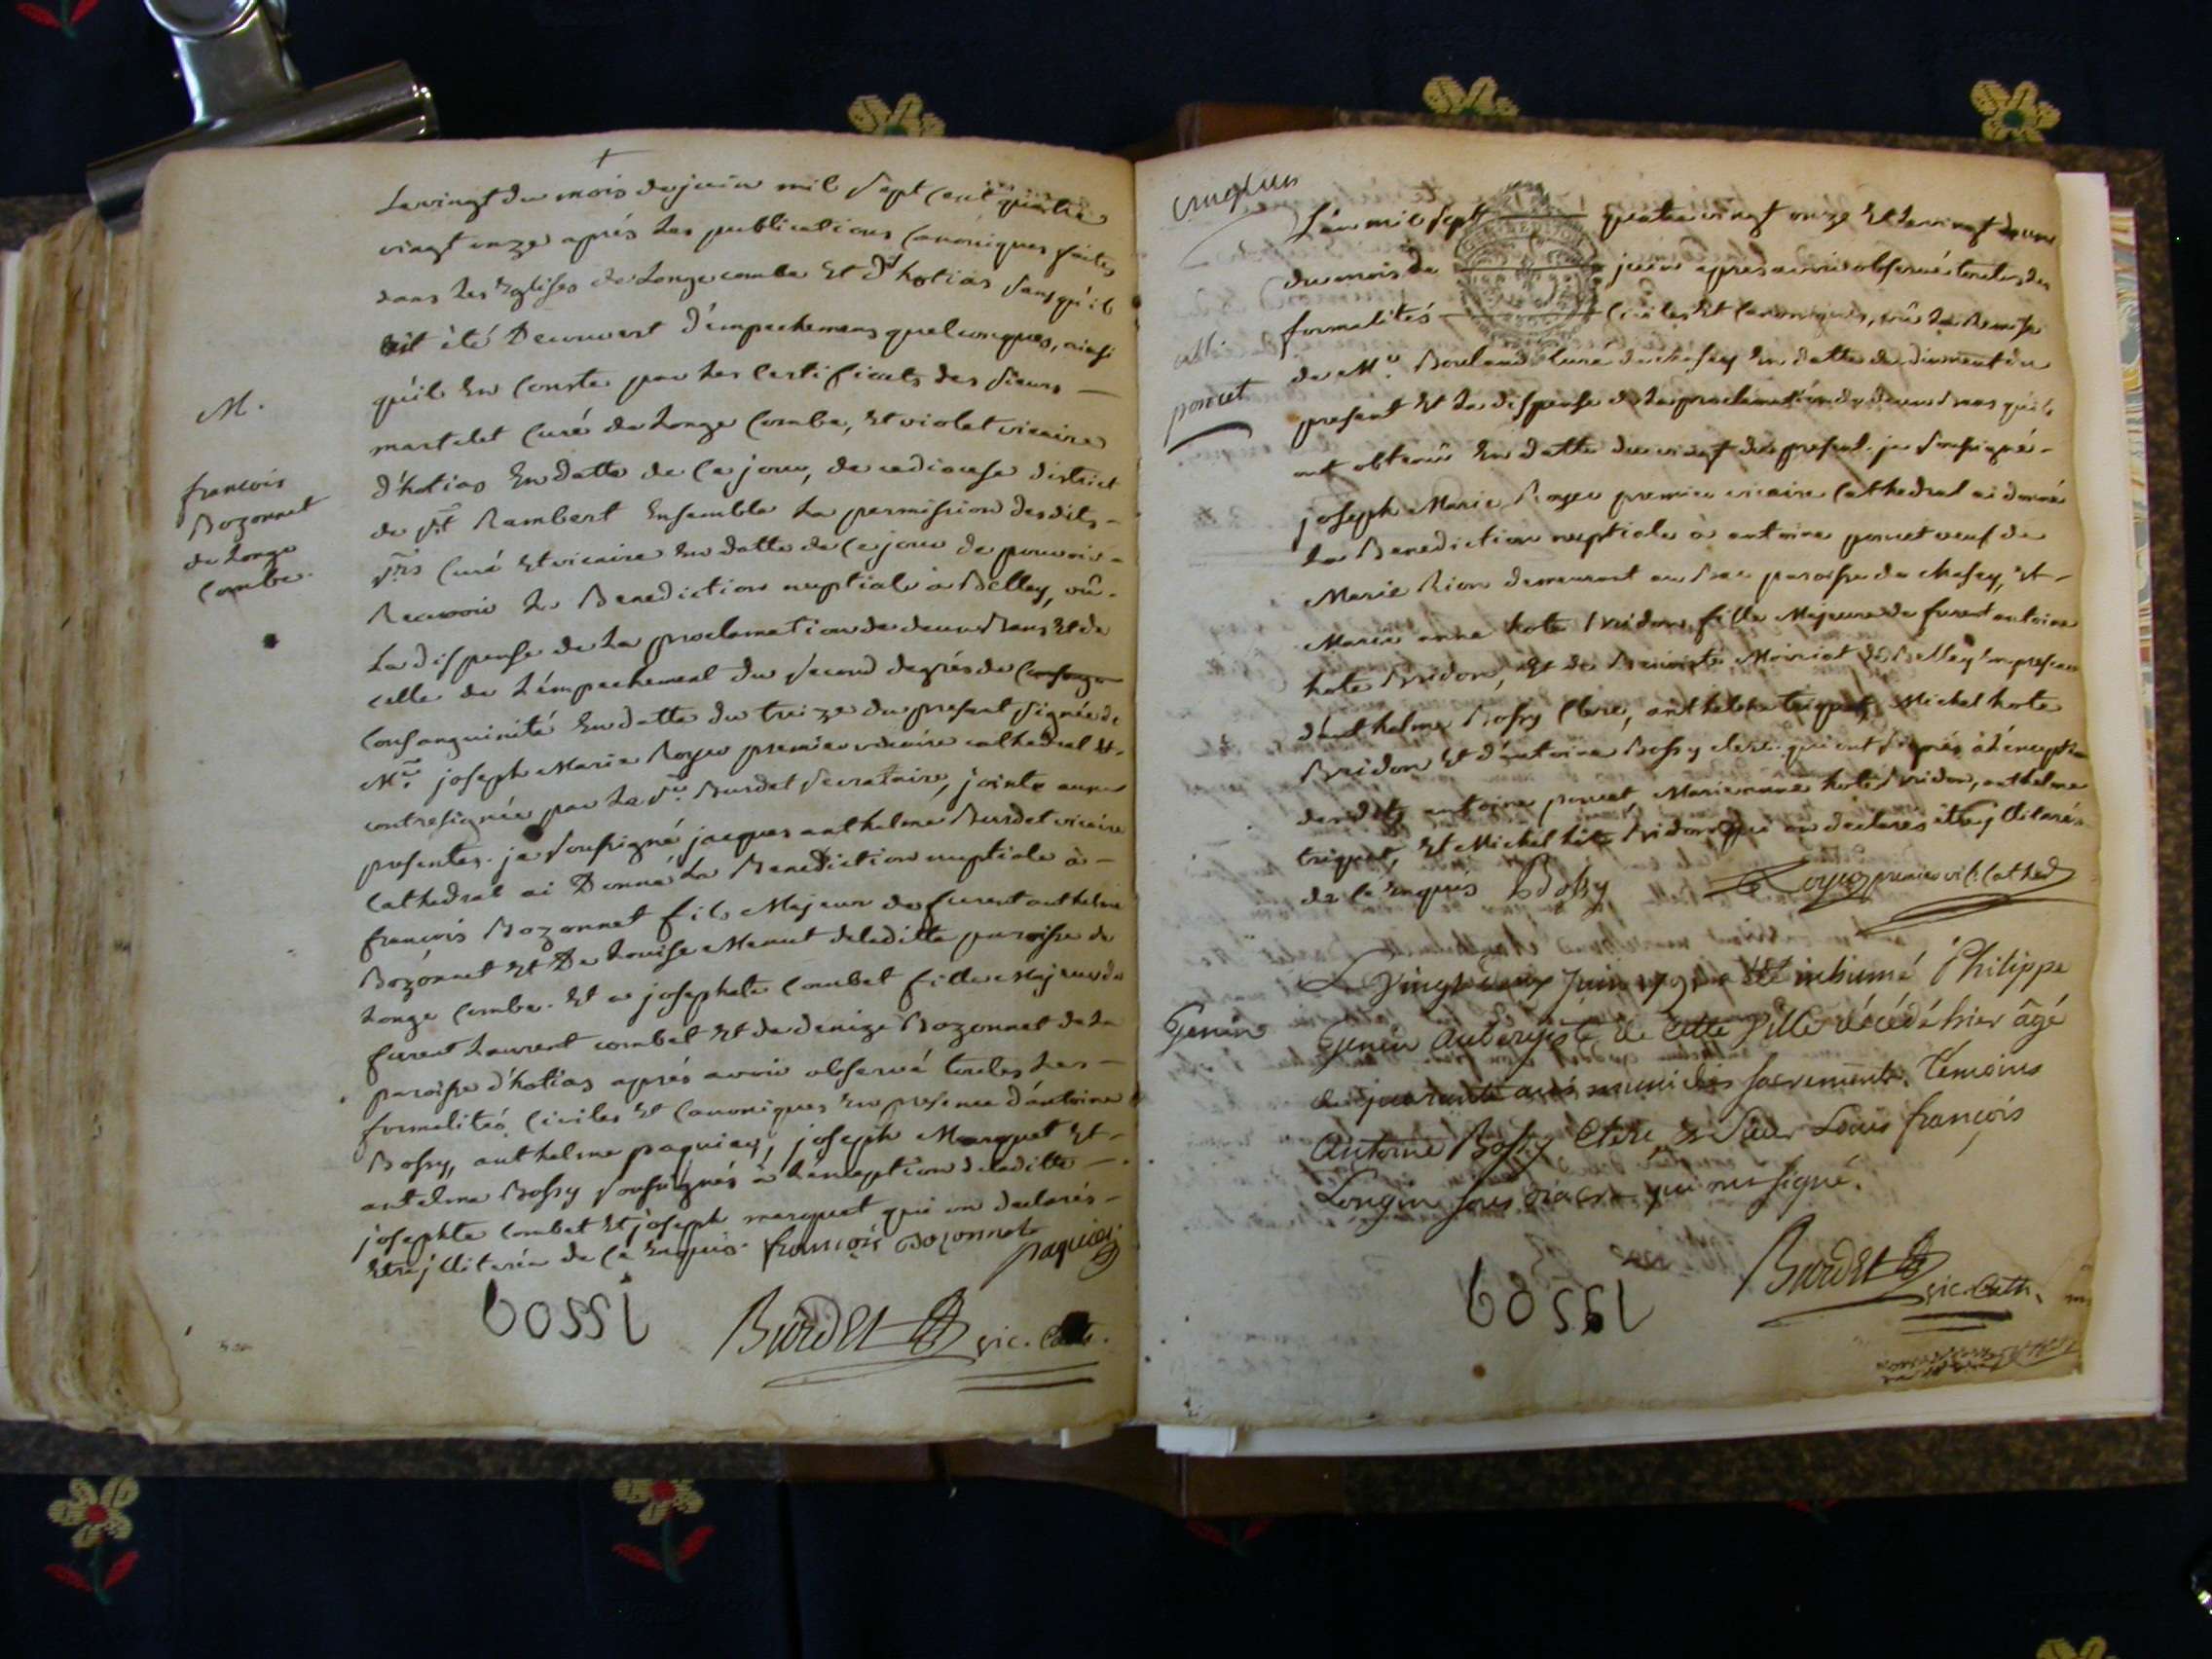 Le vingt du mois de juin mil sept cent quatre
vingt onze après les publications canoniques faites
dans les Eglises de Longecombe Et d'hotias sans qu'il
ait été Decouvert d'empechemens quelconques, ainsi
qu'il En Conste par les Certificats des sieurs
martelet Curé de Longe Combe, Et violet vicaire
d'hotias En datte de Ce jour, de district
de st Rambert Ensemble La permission desdits
srs Curé Et vicaire En datte de Ce jour de pouvoir
Recevoir La Benediction nuptiale à Belley, vû
La dispense de La proclamation de deux Bans Et de
celle de L'empechement du second degrés de
Consanguinité En datte du treize du present signée de
Mre joseph Marie Royer premier vicaire cathedral Et
contresignée par Le sr Burdet secretaire, jointe aux
presentes. je soussigné jacques anthelme Burdet vicaire
Cathedral ai Donné La Benediction nuptiale à
francois Bozonnet fils Majeur de furent anthelme
Bozonnet Et De Louise Menut deladitte paroisse de
Longe Combe. Et a josephete Combet fille Majeure de
furent Laurent combet Et de denize Bozonnet de La
paroisse d'hotias après avoir observé toutes Les
formalités Civiles Et Canoniques En presence d'antoine
Bossy, anthelme paquier, joseph Marquet Et
antelme Bossy soussignés à L'exception deladitte
josephte Combet Et joseph marquet qui on declarés
Etre jllitérés de Ce Enquis. francois Bozonnet
paquier
bossi Burdet vic. Cath.
M.
francois
Bozonnet
de Longe
Combe.
L'an mil sept quatre vingt onze Et Le vingt deux
du mois de juin apres avoir observé toutes Les
formalités Civiles Et Canoniques, vû La Remise
de Mr Bouland Curé de chasey En datte du
present Et La dispense de La proclamation de deux Bans qu'ils
ont obtenüe En datte du vingt du present. je soussigné
joseph Marie Royer premier vicaire Cathedral ai donné
La Benediction nuptiale à antoine poncet veuf de
Marie Rion demeurant au Bac paroisse de chasey, Et
Marie anne hote Bridon, fille Majeure de furent antoine
hote Bridon, Et de Moiriat de Belley En presence
d'anthelme Bossy Clerc, anthelme triquet, Michel hote
Bridon Et d'antoine Bossy clerc qui ont signés à L'exception
desdits antoine poncet, Marie anne hote Bridon, anthelme
triquet, Et Michel hote Bridon qui on declarés être jllitérés
de Ce Enquis Bossy Royer premier vic. Cathed
poncet
Le Vingt deux Juin 1791 a été inhumé Philippe
Genin Aubergiste de cette Ville décédé hier âgé
de quarante ans muni des sacrements. Témoins
Antoine Bossy Clerc & Sieur Louis françois
Longin sous diacre qui ont signé.
Genin
bossi Burdet vic. Cath.